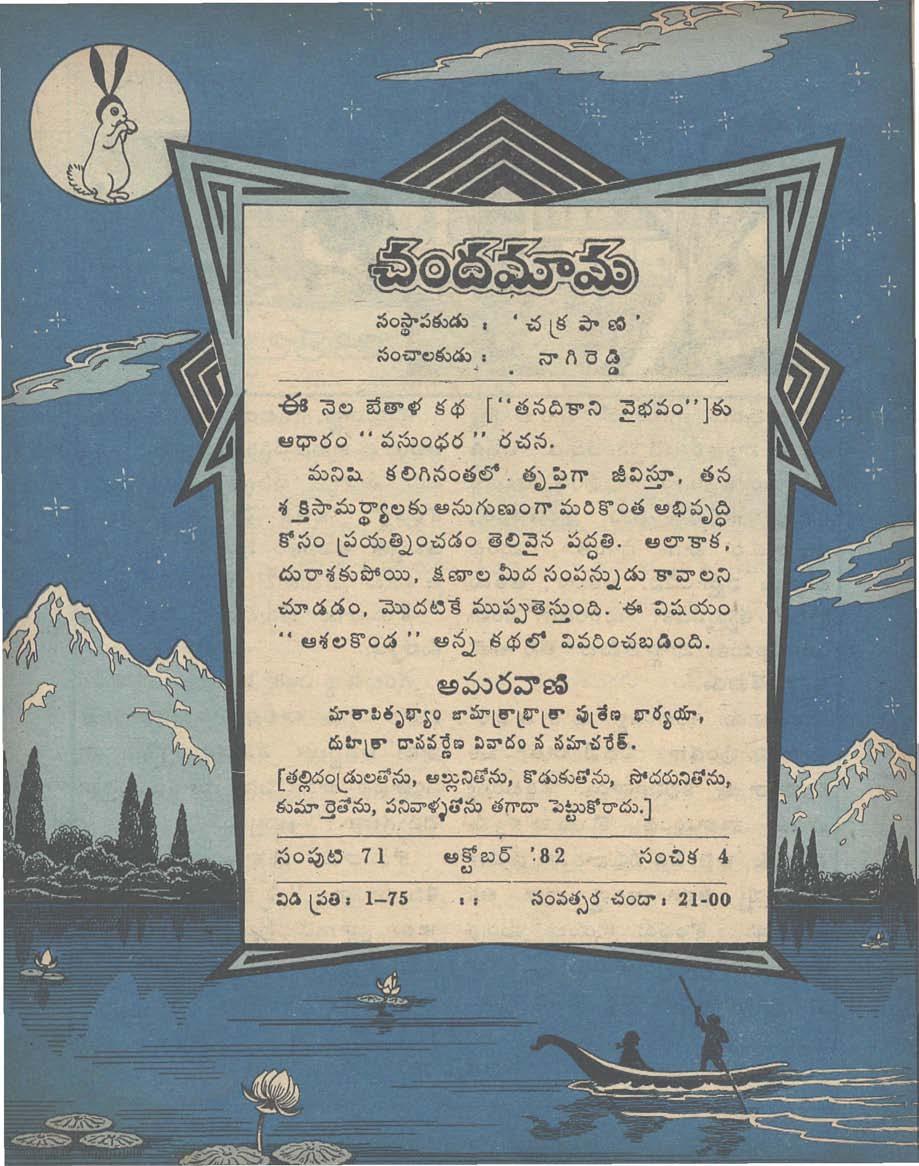 చందమామ
సంస్థాపకుడు : ' చ క్ర పా ణి '
సంచాలకుడు : నా గి రె డ్డి
ఈ నెల బేతాళ కథ [“తనదికాని వైభవం”]కు
ఆధారం “ వసుంధర ” రచన.
మనిషి కలిగినంతలో తృప్తిగా జీవిస్తూ, తన
శక్తిసామర్థ్యాలకు అనుగుణంగా మరికొంత అభివృద్ధి
కోసం ప్రయత్నించడం తెలివైన పద్ధతి. అలాకాక,
దురాశకుపోయి, క్షణాల మీద సంపన్నుడు కావాలని
చూడడం, మొదటికే ముప్పుతెస్తుంది. ఈ విషయం
“ ఆశలకొండ ” అన్న కథలో వివరించబడింది.
అమరవాణి
మాతాపితృభ్యాం జామాత్రాభ్రాత్రా పుత్రేణ భార్యయా,
దుహిత్రా దాసవర్గేణ వివాదం న సమాచరేత్.
[తల్లిదండ్రులతోను, అల్లునితోను, కొడుకుతోను, సోదరునితోను,
కుమార్తెతోను, పనివాళ్ళతోను తగాదా పెట్టుకోరాదు.]
సంపుటి 71 అక్టోబర్ '82 సంచిక 4
విడి ప్రతి: 1-75 :: సంవత్సర చందా: 21-00